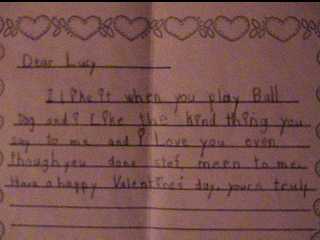 Dear Lucy
I like it when you play Ball
Dog and i Like the kind thing you
say to me and I Love you even
though you done stef meen to me.
Have a happy Valentine's day, yours truly